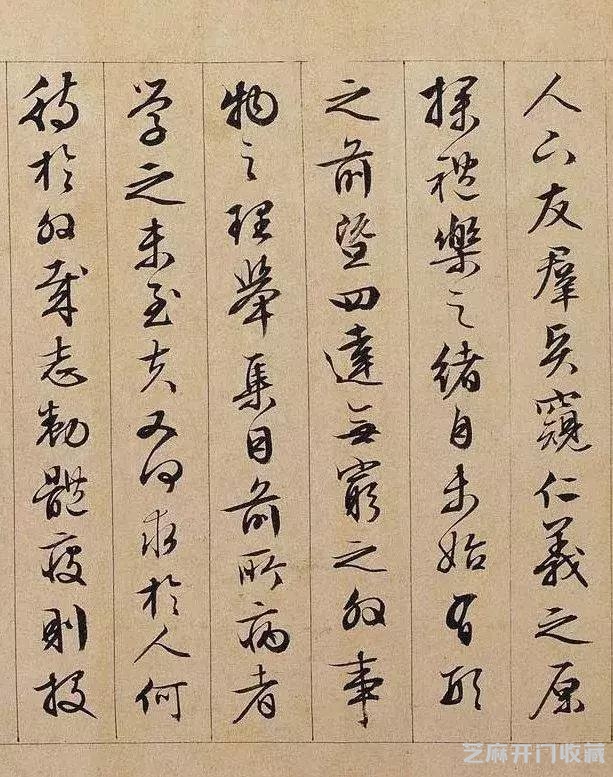 人下友羣賢窺仁義之原
探禮樂之緒自未始有形
之前暨四達無窮之外事
物之理舉集目前所病者
學之未至夫又何求於人何
待於外哉志勌體疲則投
芝麻开门收藏